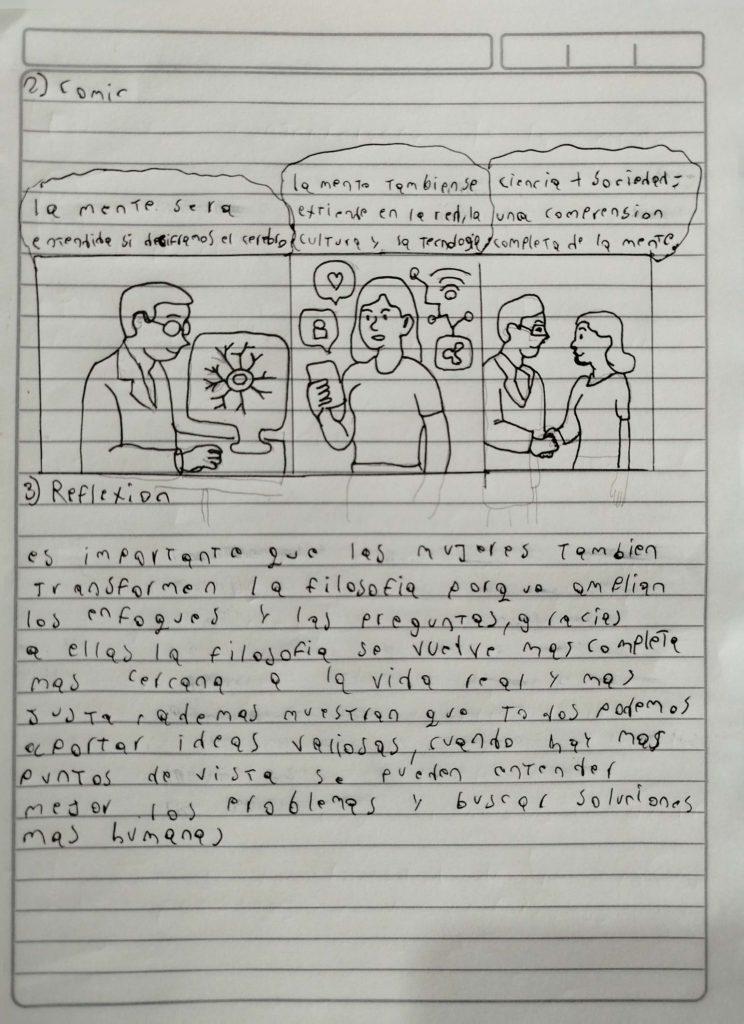 2) Comic
la mente sera
entendida si desciframos el cerebro
la mente tambien se
extiende en la red, la
cultura y la tecnologia
ciencia + Sociedad =
una comprension
completa de la mente
3) Reflexion
es importante que las mujeres tambien
transformen la filosofia porque amplian
los enfoques y las preguntas, gracias
a ellas la filosofia se vuelve mas completa
mas cercana a la vida real y mas
justa ademas muestran que todos podemos
aportar ideas valiosas, cuando hay mas
puntos de vista se pueden entender
mejor los problemas y buscar soluciones
mas humanas